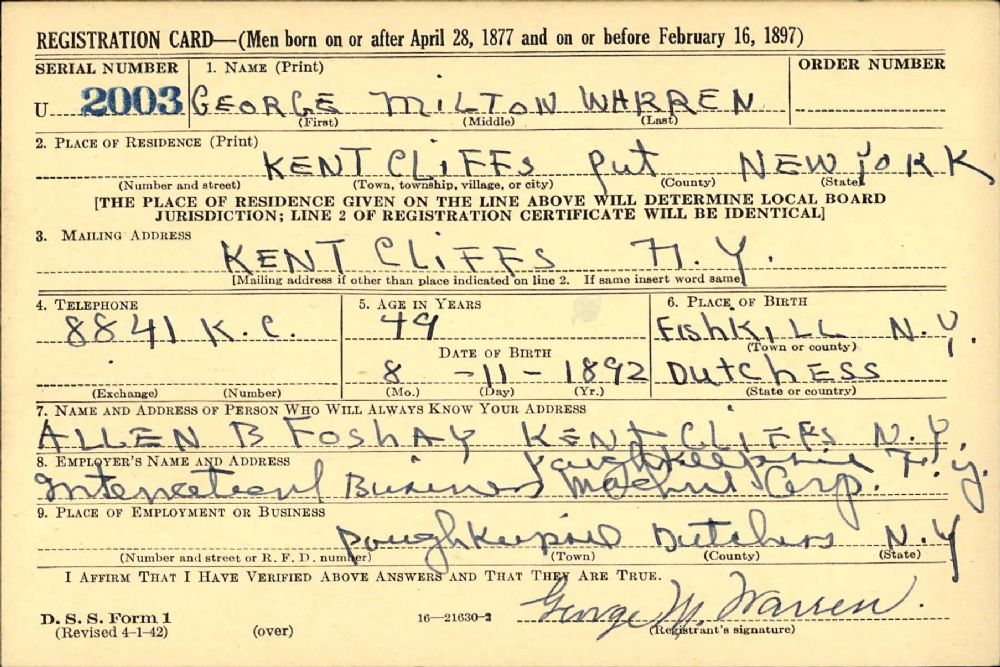 REGISTRATION CARD—(Men born on or after April 28, 1877 and on or before February 16, 1897)
SERIAL NUMBER 1. NAME (Print) ORDER NUMBER
U 2003 GEORGE MILTON WARREN
(First) (Middle) (Last)
2. PLACE OF RESIDENCE (Print)
KENT CLIFFS Put NEW YORK
(Number and street) (Town, township, village, or city) (County) (State)
[THE PLACE OF RESIDENCE GIVEN ON THE LINE ABOVE WILL DETERMINE LOCAL BOARD
JURISDICTION; LINE 2 OF REGISTRATION CERTIFICATE WILL BE IDENTICAL]
3. MAILING ADDRESS
KENT CLIFFS N.Y.
[Mailing address if other than place indicated on line 2. If same insert word same]
4. TELEPHONE 5. AGE IN YEARS 6. PLACE OF BIRTH
8841 K.C. 49 FishKILL N.Y.
DATE OF BIRTH (Town or county)
8 -11- 1892 DutchESS
(Exchange) (Number) (Mo.) (Day) (Yr.) (State or country)
7. NAME AND ADDRESS OF PERSON WHO WILL ALWAYS KNOW YOUR ADDRESS
ALLEN B FoshAY KENT CLIFFS N.Y.
8. EMPLOYER'S NAME AND ADDRESS Poughkeepsie N.Y.
International Business Machine Corp.
9. PLACE OF EMPLOYMENT OR BUSINESS
Poughkeepsie Dutchess N.Y
(Number and street or R. F. D. number) (Town) (County) (State)
I AFFIRM THAT I HAVE VERIFIED ABOVE ANSWERS AND THAT THEY ARE TRUE.
D. S. S. Form 1 16—21630-2 George M. Warren.
(Revised 4-1-42) (over) (Registrant's signature)